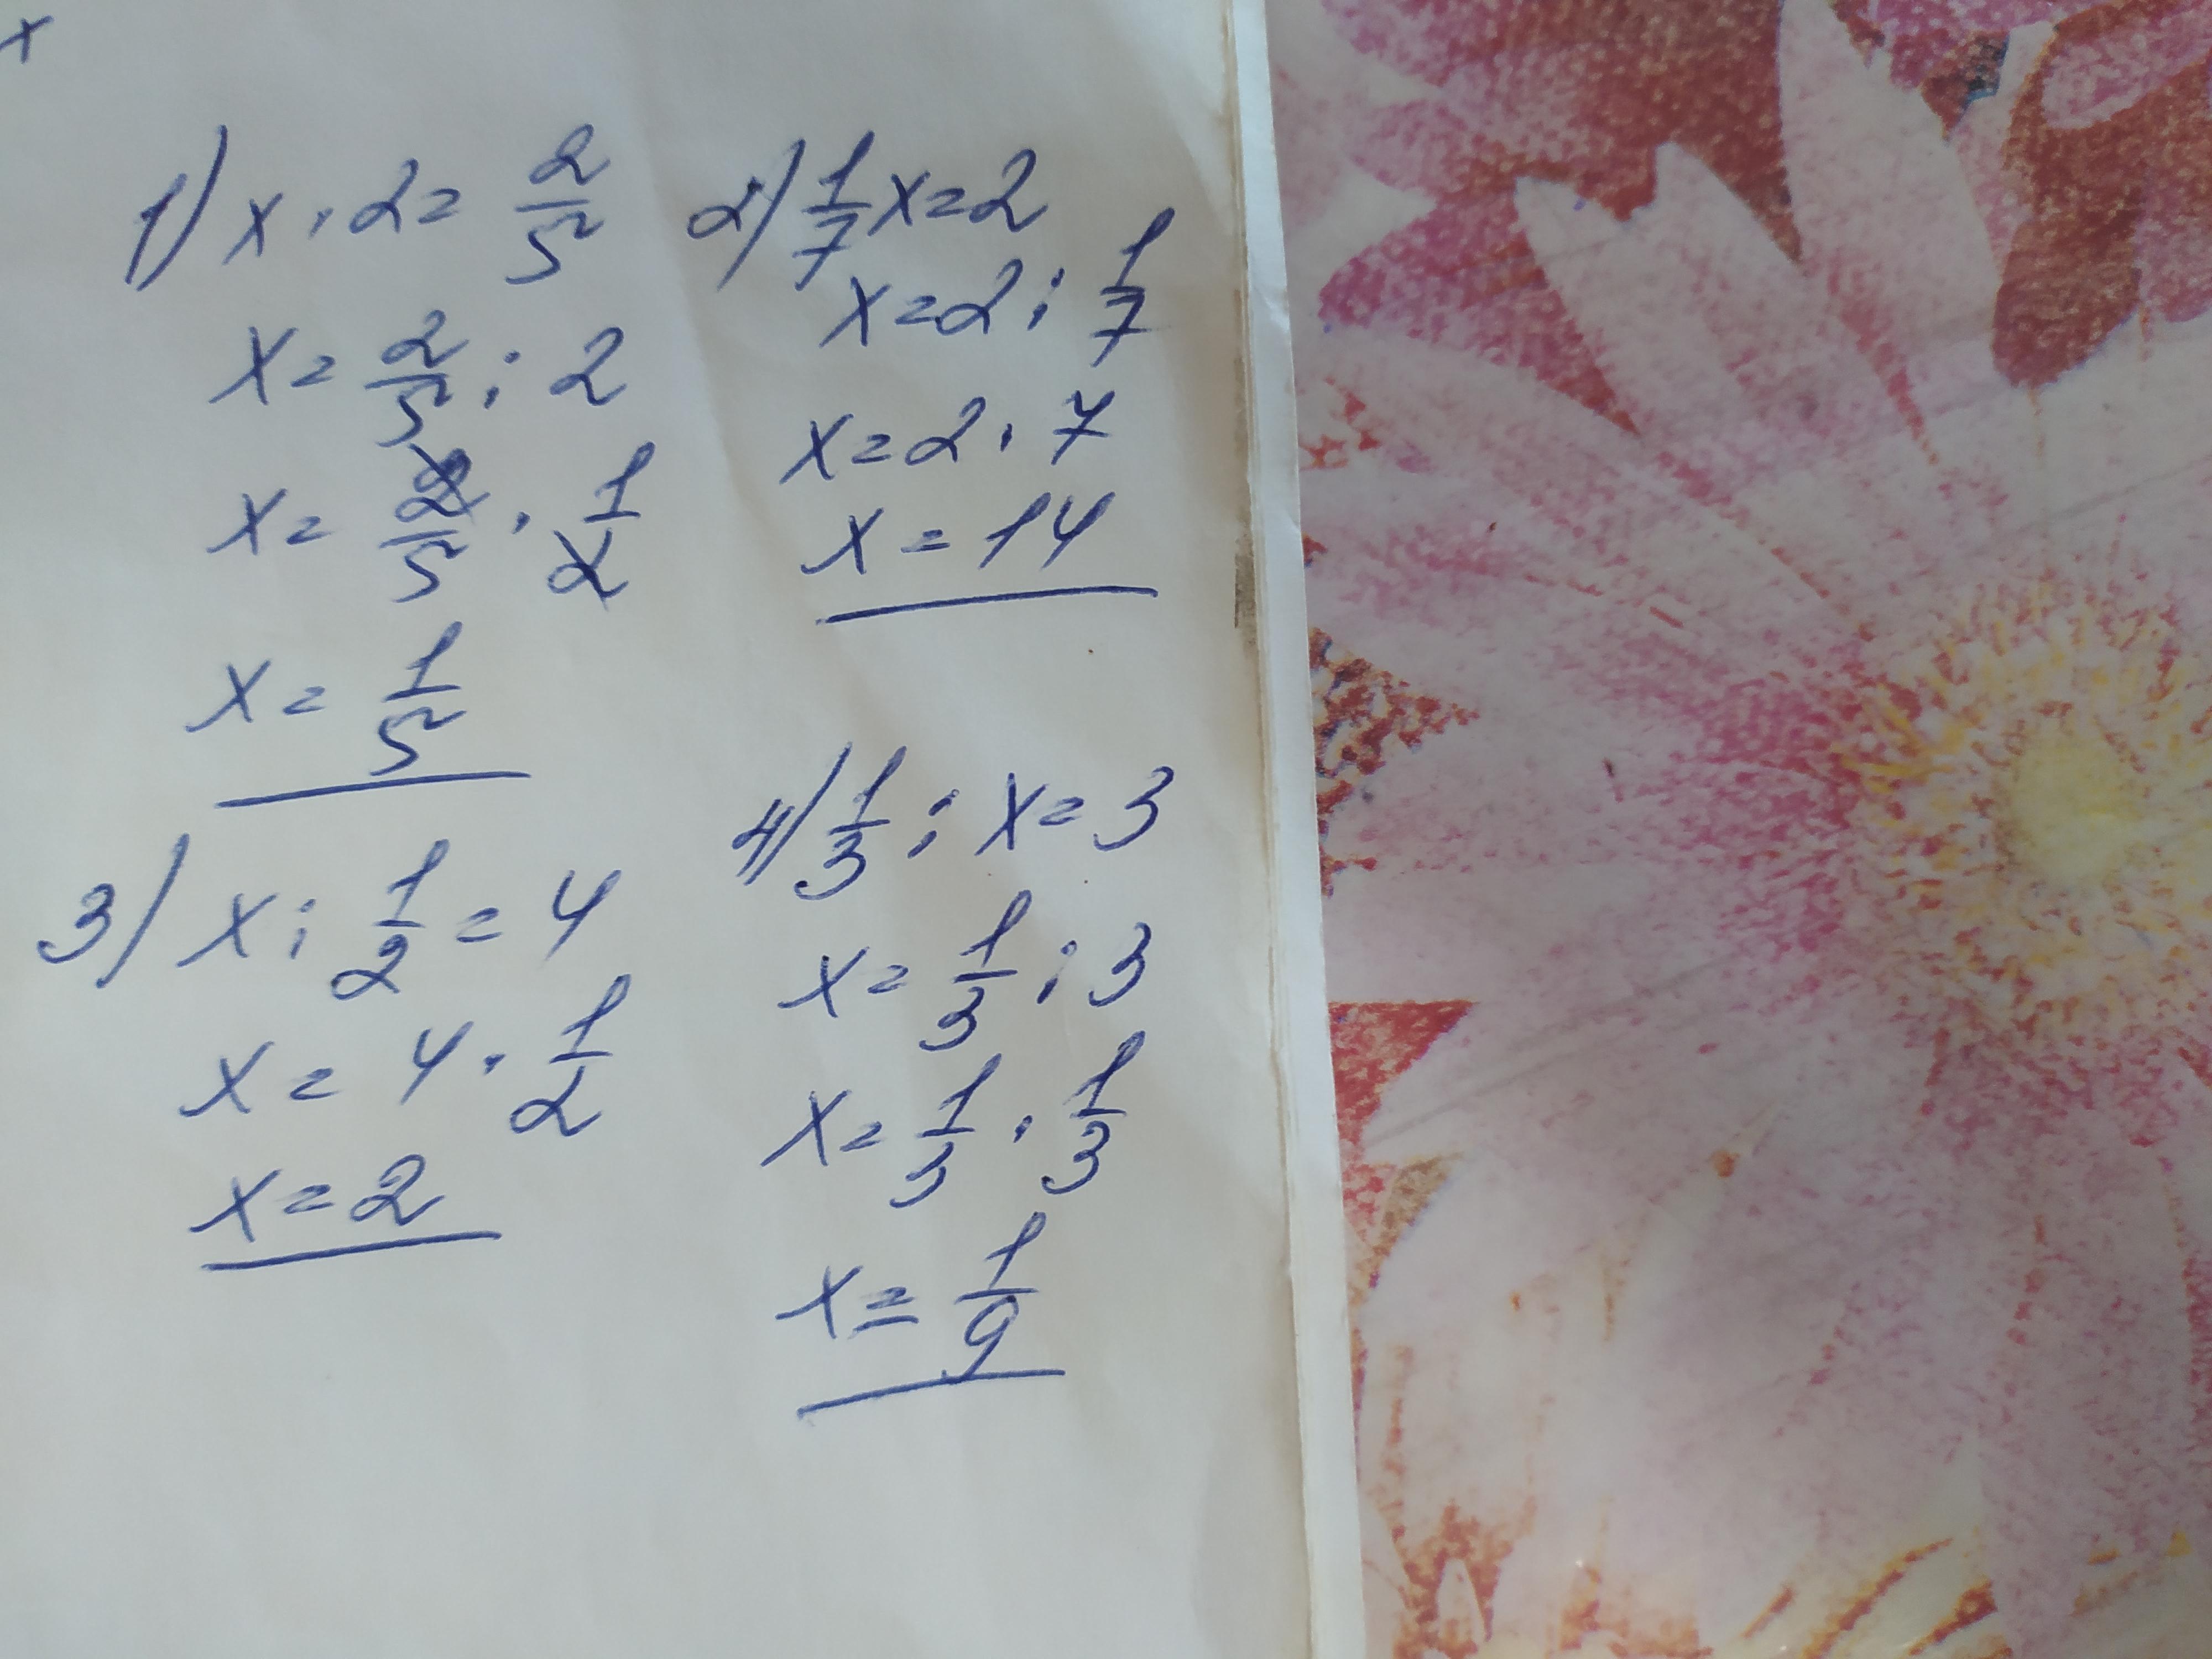 x
1) x · 2 = 2/5
x = 2/5 : 2
x = 2/5 · 1/2
x = 1/5
2) 1/7 x = 2
x = 2 : 1/7
x = 2 · 7
x = 14
3) x : 1/2 = 4
x = 4 · 1/2
x = 2
4) 1/3 : x = 3
x = 1/3 : 3
x = 1/3 · 1/3
x = 1/9